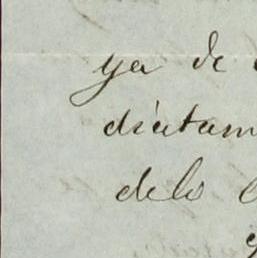 ya de
dictam
delo